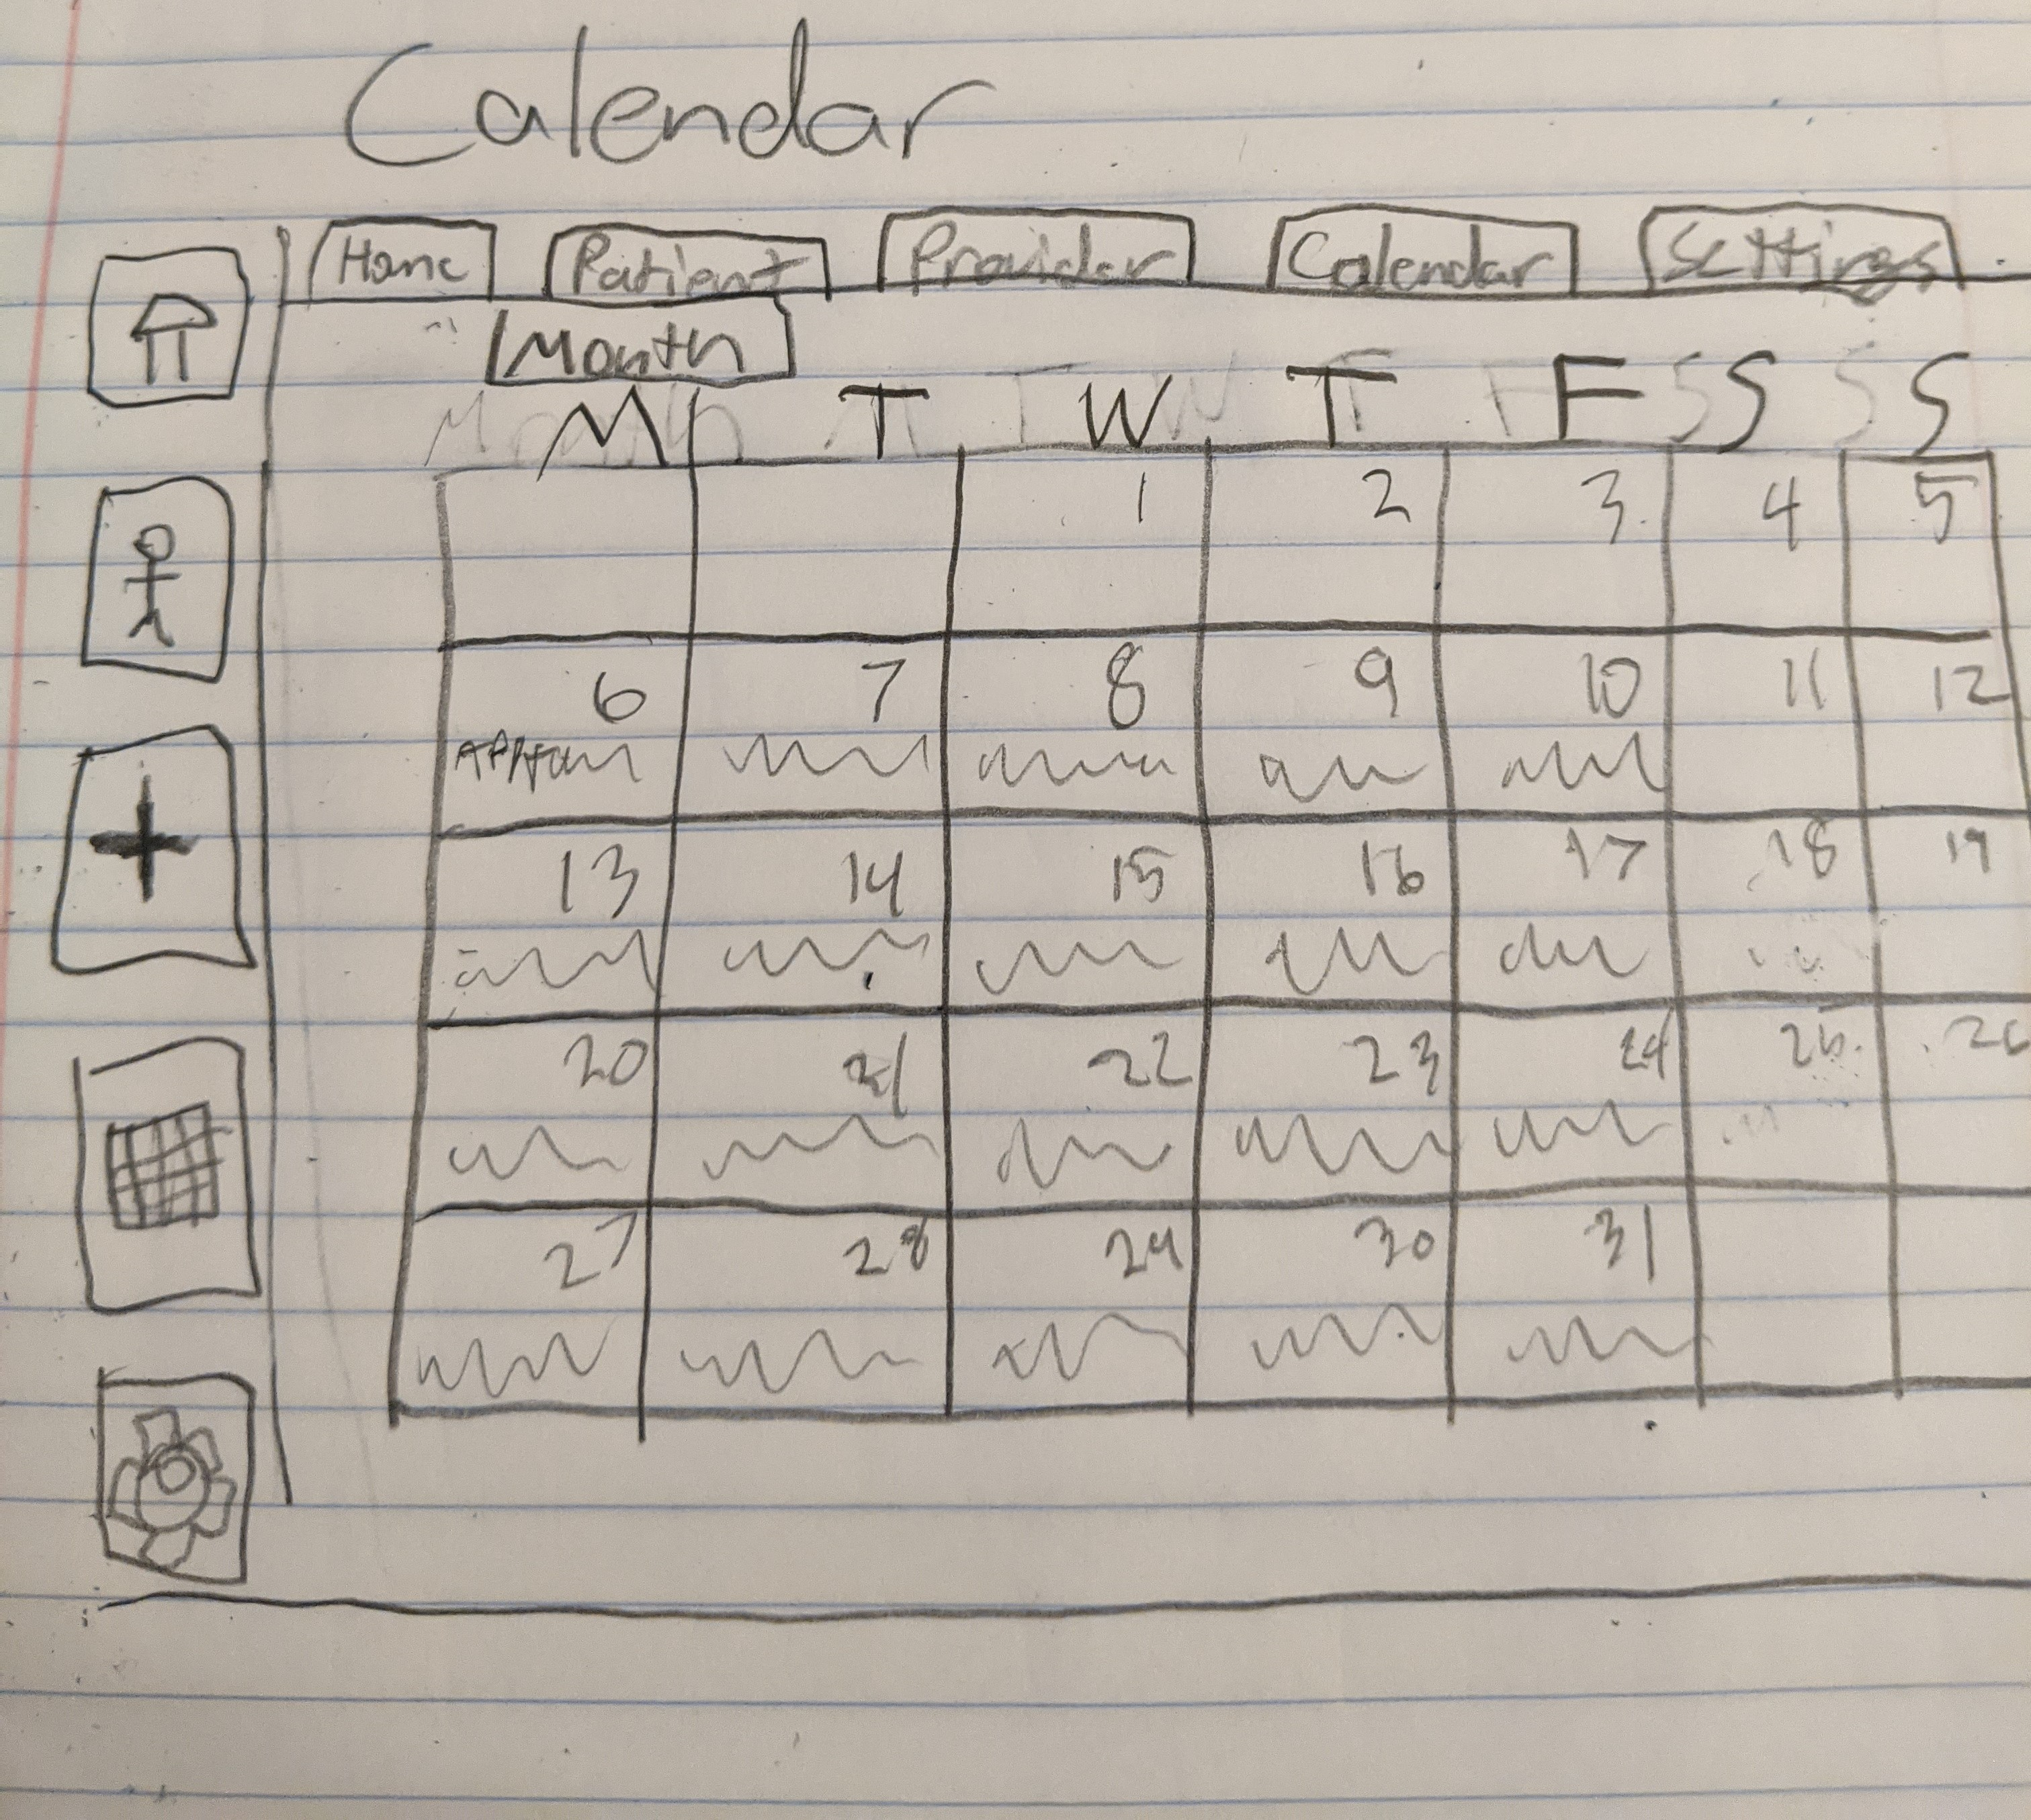 Calendar
Home Patient Provider Calendar Settings
Month
M T W T F S S
1 2 3 4 5
6 7 8 9 10 11 12
13 14 15 16 17 18 19
20 21 22 23 24 25 26
27 28 29 30 31